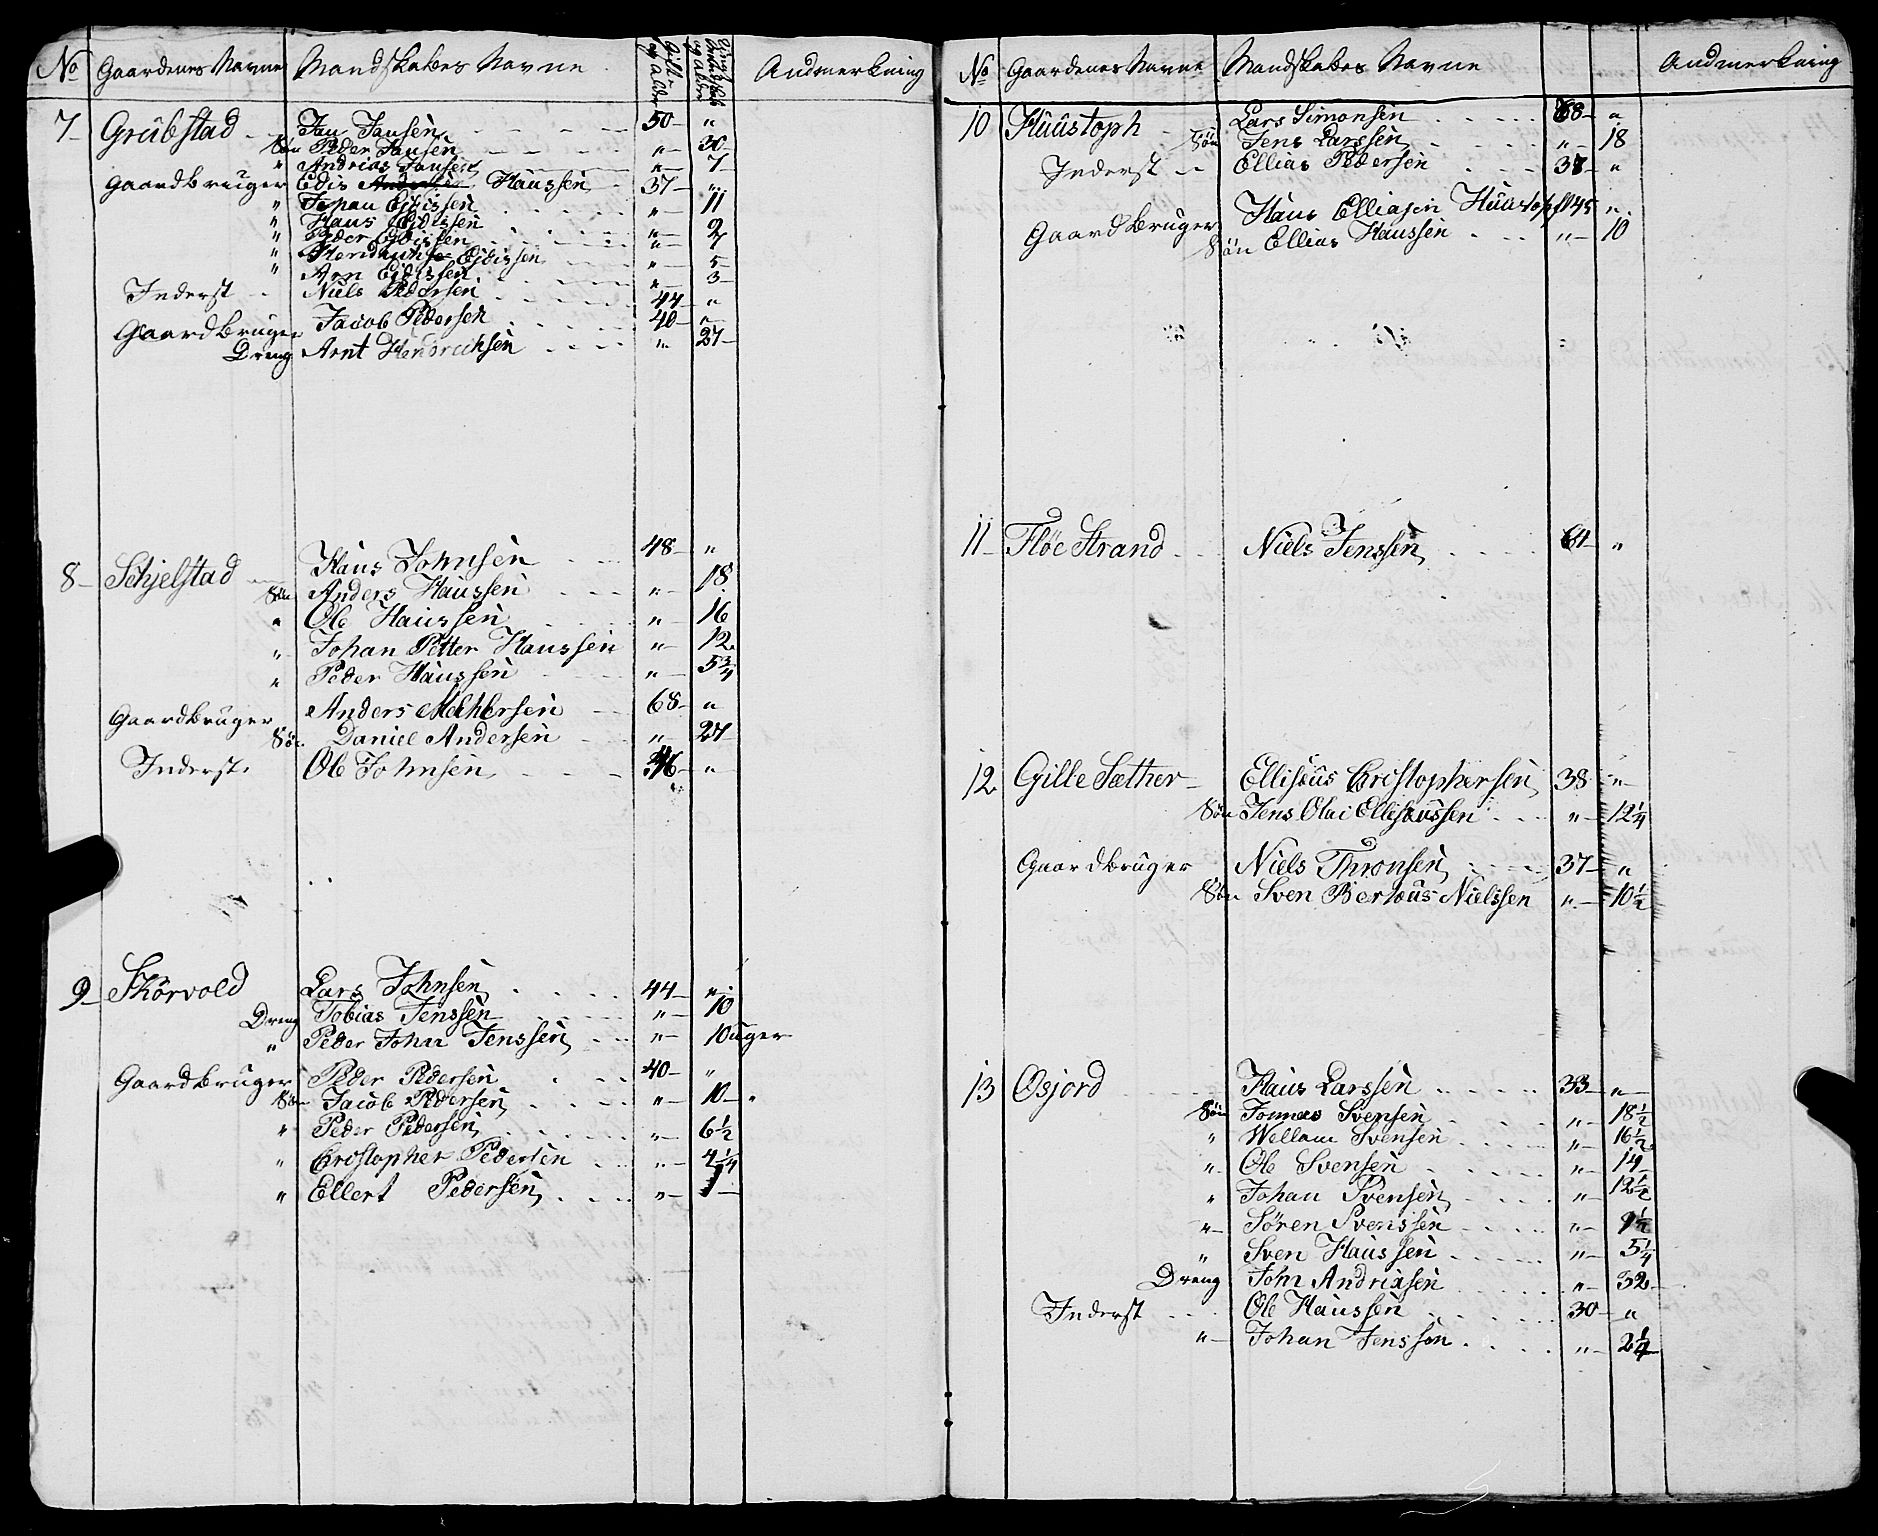 No Gaardenes Navne Mandskabes Navne Gift og alder Andmerkning
7 Grubstad Jan Jansen 50 "
Søn Peder Jansen " 30
" Andrias Jansen " 7
Gaardbruger Edis Andersen Hanssen 37 "
" Johan Ejdissen " 11
" Hans Ejdissen " 2
" Peder Ejdissen " 7
" Hendrich Ejdissen " 5
" Arn Ejdissen " 3
Inderst Niels Pedersen 44 "
Gaardbruger Jacob Pedersen 40 "
Dreng Arnt Hendrichsen " 27
8 Schjelstad Hans Johnsen 48 "
Søn Anders Hanssen " 18
" Ole Hanssen " 16
" Johan Petter Hanssen " 12
" Peder Hanssen " 5 3/4
Gaardbruger Anders Melchersen 68 "
Søn Daniel Andersen " 27
Inderst Ole Johnsen 36 "
9 Skörvold Lars Johnsen 44 "
Dreng Tobias Jenssen " 10
" Peder John Jenssen " 10 uger
Gaardbruger Peder Pedersen 40 "
Søn Jacob Pedersen " 10
" Peder Pedersen " 6 1/2
" Christopher Pedersen " 4 1/4
" Ellert Pedersen " 1
No Gaardenes Navne Mandskabes Navne Andmerkning
10 Huustoph Lars Simonsen 68 "
Søn Jens Larssen " 18
Inderst Ellias Pedersen 37 "
Gaardbruger Hans Elliasen Huustoph 45 "
Søn Ellias Hanssen " 10
11 Flöe Strand Niels Jenssen 64 "
12 Gille Sæther Ellisæus Christophersen 38 "
Søn Jens Olai Ellisæussen " 12 1/4
Gaardbruger Niels Thronsen 37 "
Søn Sven Bertæus Nielssen " 10 1/2
13 Osjord Hans Larssen 33 "
Søn Jonnas Svensen " 18 1/2
" Wellam Svensen " 16 1/2
" Ole Svensen " 14
" Johan Svensen " 12 1/2
" Sören Svenssen " 9 1/2
" Sven Hanssen " 5 1/4
Dreng John Andriasen " 32
Inderst Ole Hanssen 30 "
" Johan Jenssen " 2 1/4